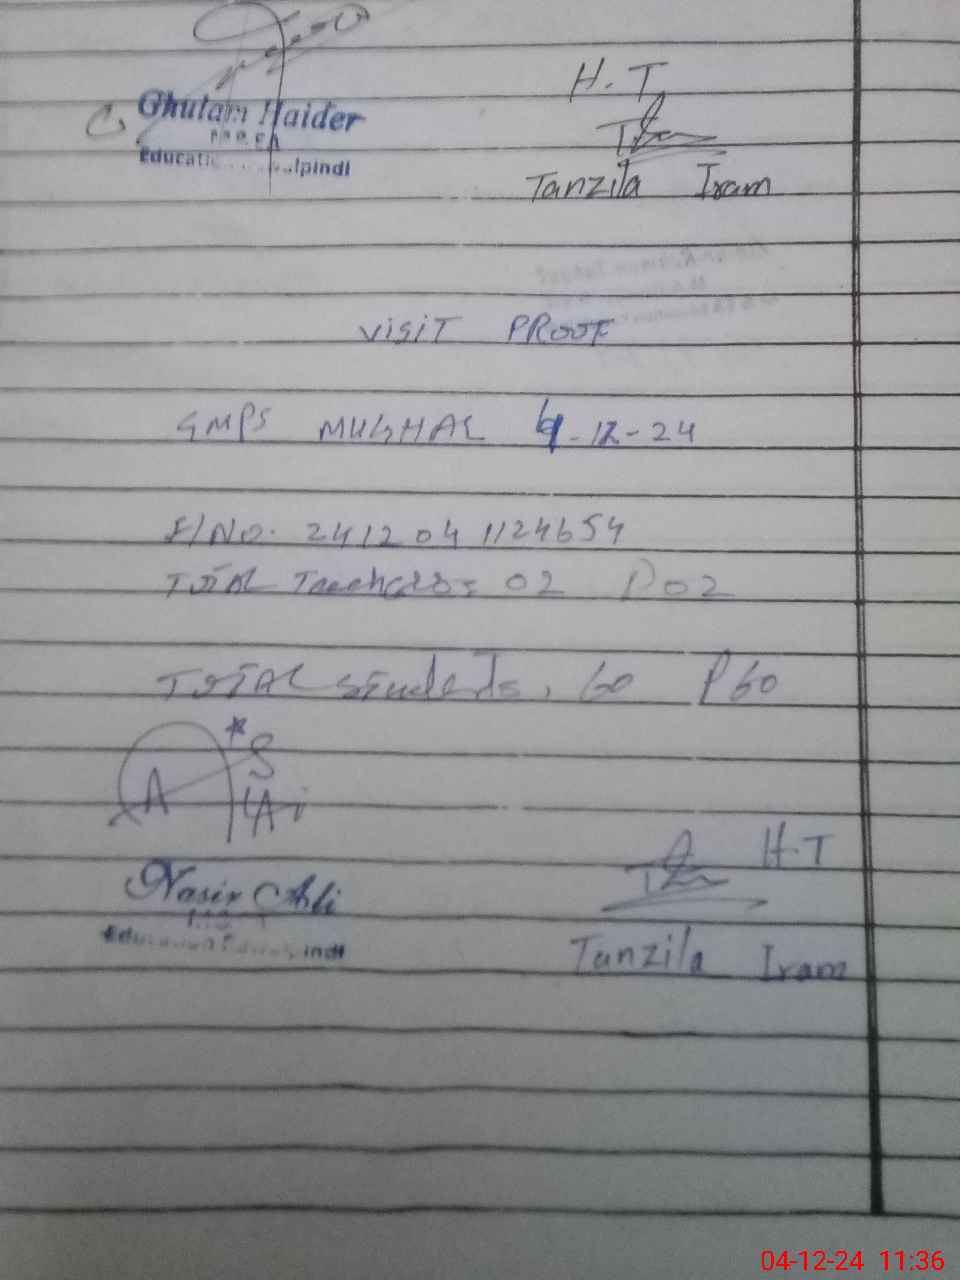 H.T
Ghulam Haider
Tanzila Iram
VISIT PROOF
GMPS MUGHAL 4-12-24
F/NO. 241204 1124654
TOTAL Teachers: 02 P02
TOTAL Students, 60 P60
A
H.T
Nasir Ali
Education
Tanzila Iram
04-12-24 11:36